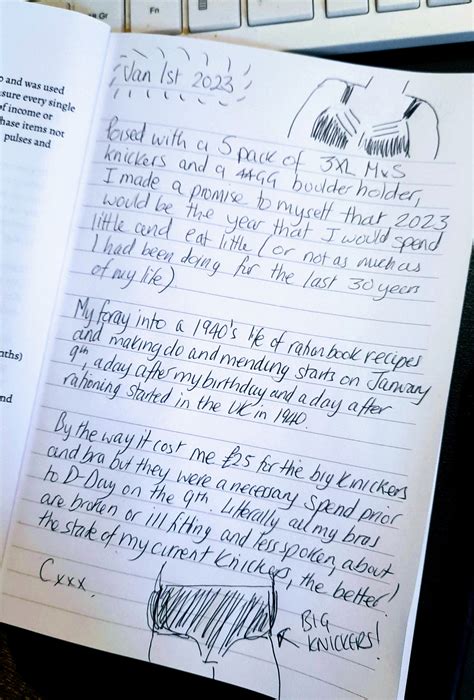 Gr
Fn
Jan 1st 2023
o and was used
sure every single
of income or
hase items not
pulses and
nths)
nd
Poised with a 5 pack of 3XL M&S
knickers and a 44GG boulder holder,
I made a promise to myself that 2023
would be the year that I would spend
little and eat little (or not as much as
I had been doing for the last 30 years
of my life).
My foray into a 1940's life of ration book recipes
and making do and mending starts on January
9th, a day after my birthday and a day after
rationing started in the UK in 1940.
By the way it cost me £25 for the big knickers
and bra but they were a necessary spend prior
to D-Day on the 9th. Literally all my bras
are broken or ill fitting and less spoken, about
the state of my current knickers, the better!
Cxxx.
BIG
KNICKERS!